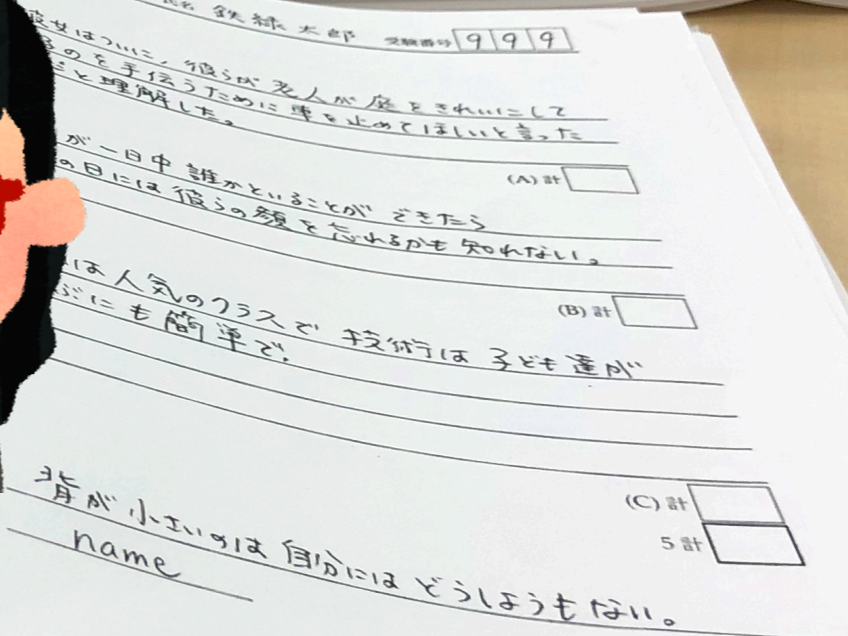 氏名 鉄緑太郎 受験番号 999
彼女はついに、彼らが老人が庭をきれいにして
るのを手伝うために車を止めてほしいと言った
と理解した。
(A)計
が一日中誰かといることができたら
の日には彼らの顔を忘れるかも知れない。
(B)計
は人気のクラスで 技術は子ども達が
ぶにも簡単で、
(C)計
5計
背が小さいのは自分にはどうしようもない。
name